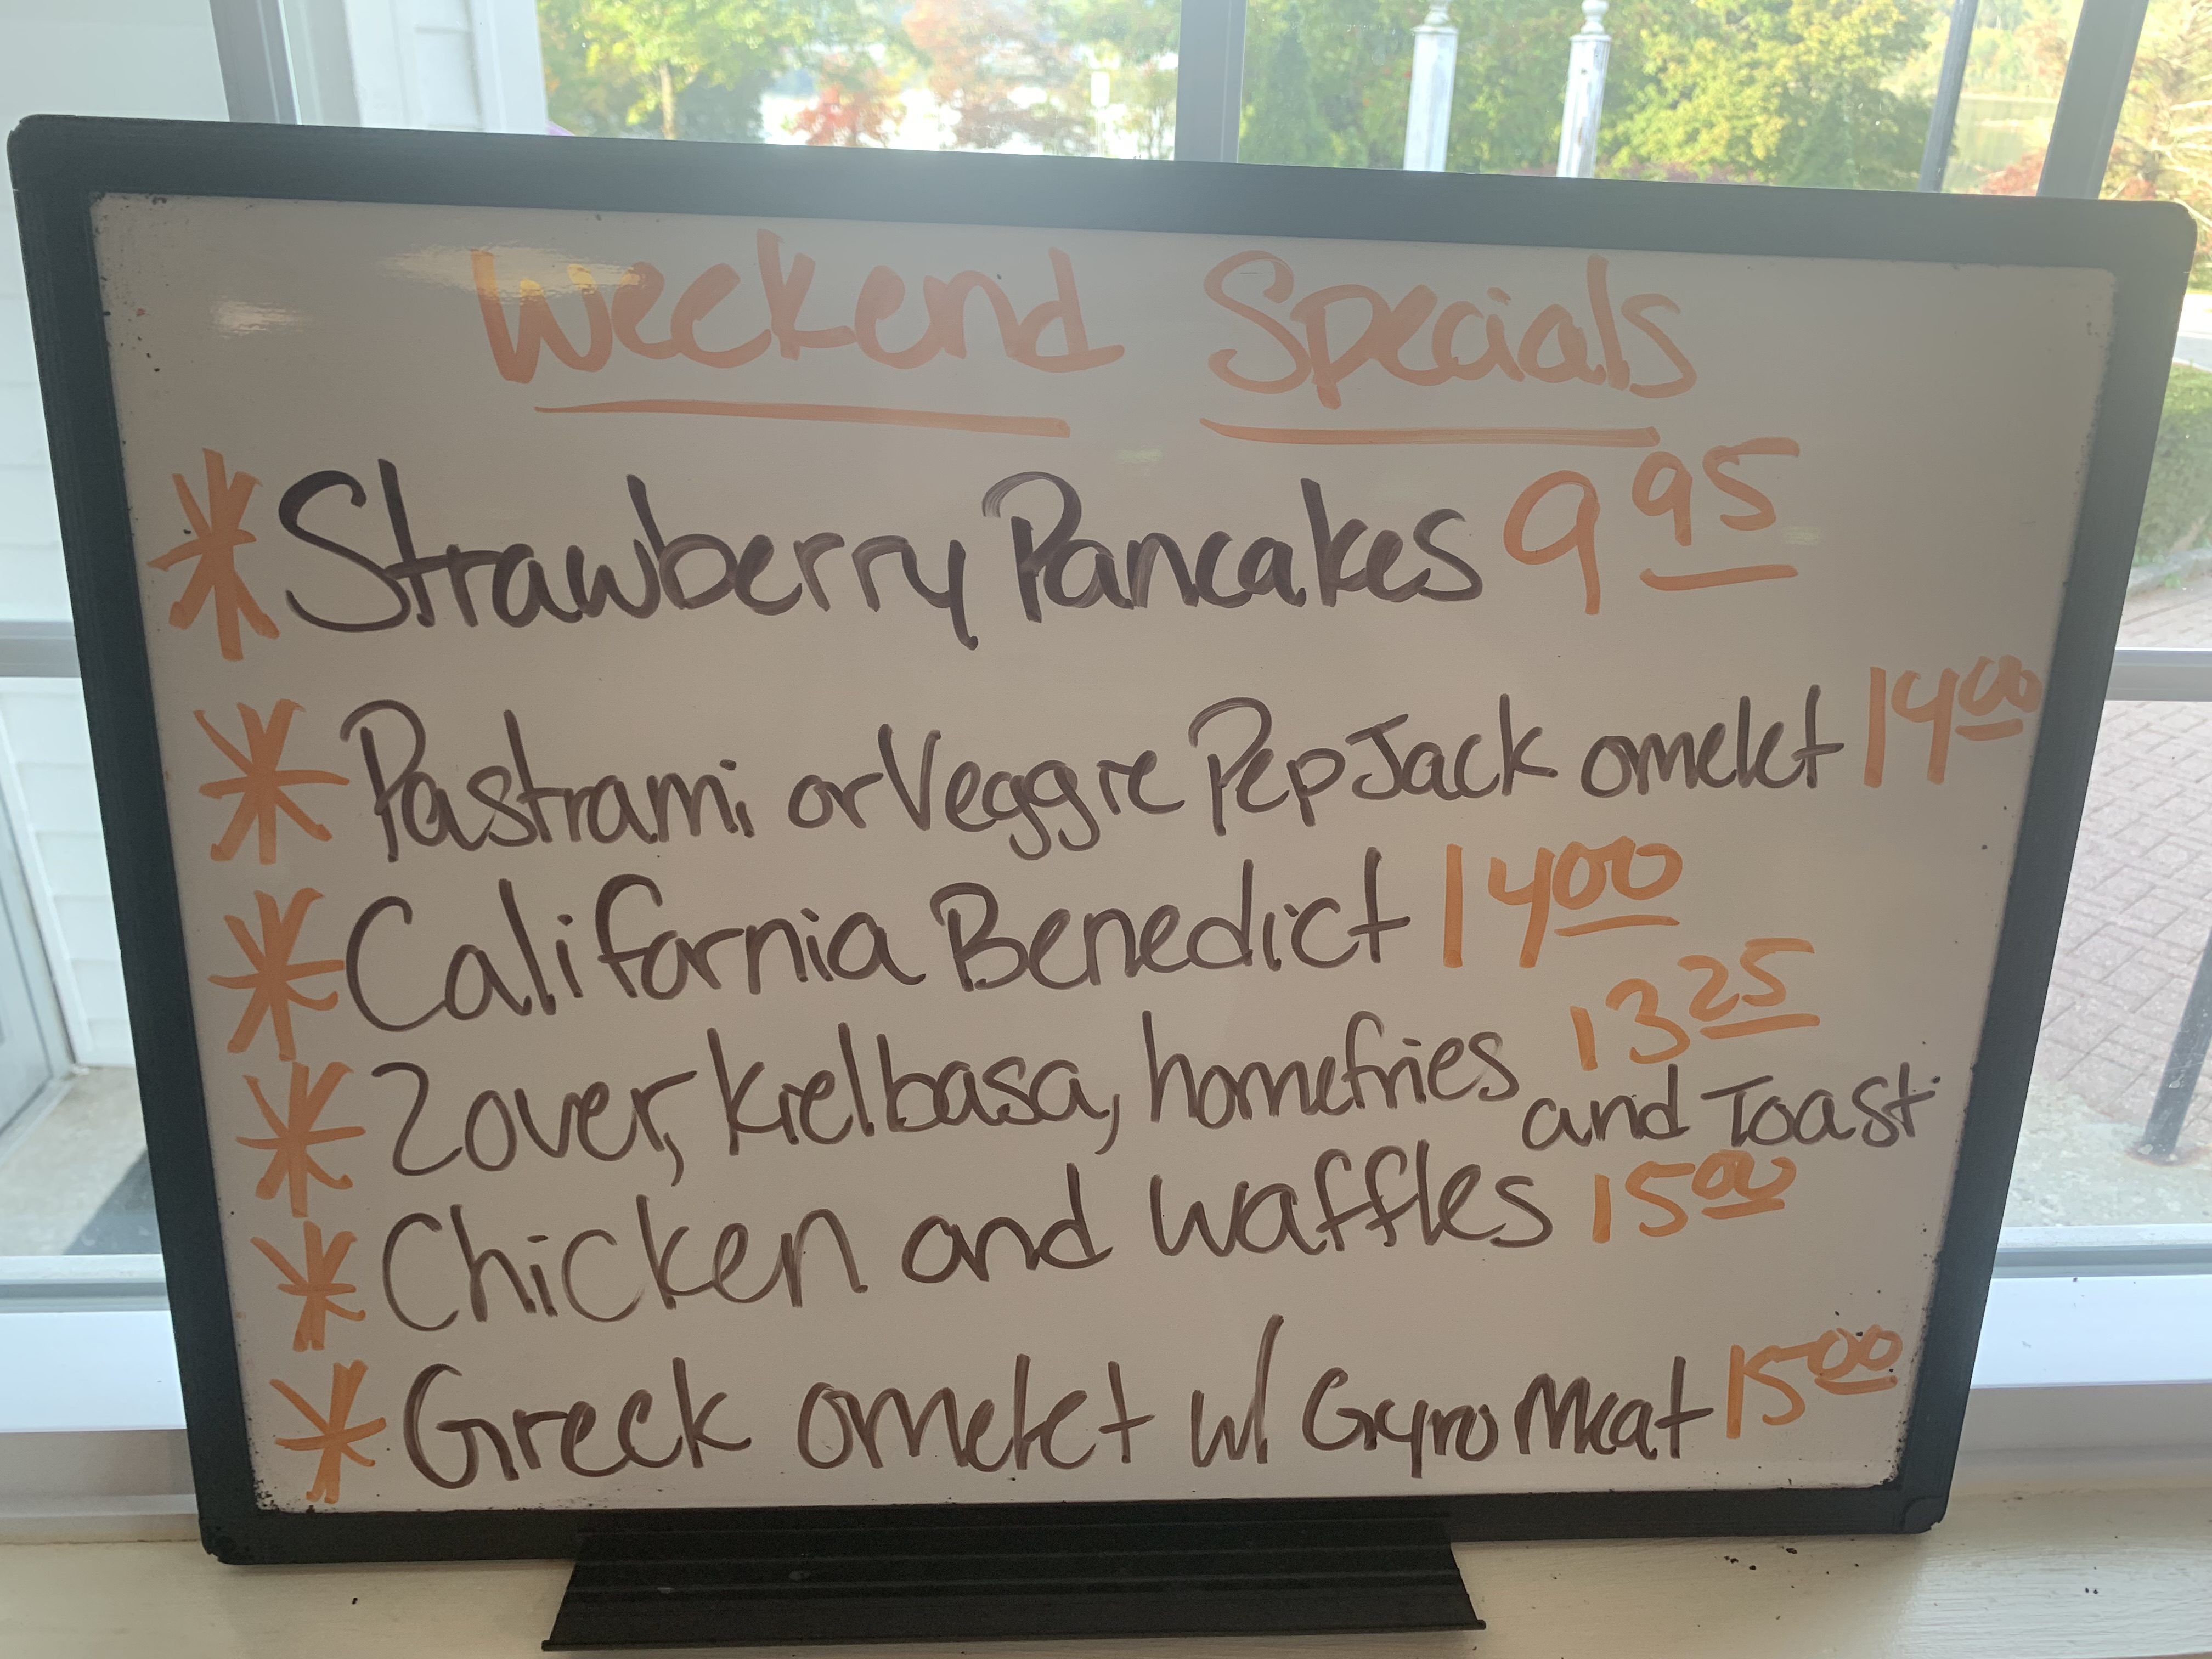 Weekend Specials
* Strawberry Pancakes 9 95
* Pastrami or Veggie Pep Jack omelet 14 00
* California Benedict 14 00
* 2 over, kielbasa, homefries and Toast 13 25
* Chicken and waffles 15 00
* Greek omelet w/ Gyro Meat 15 00